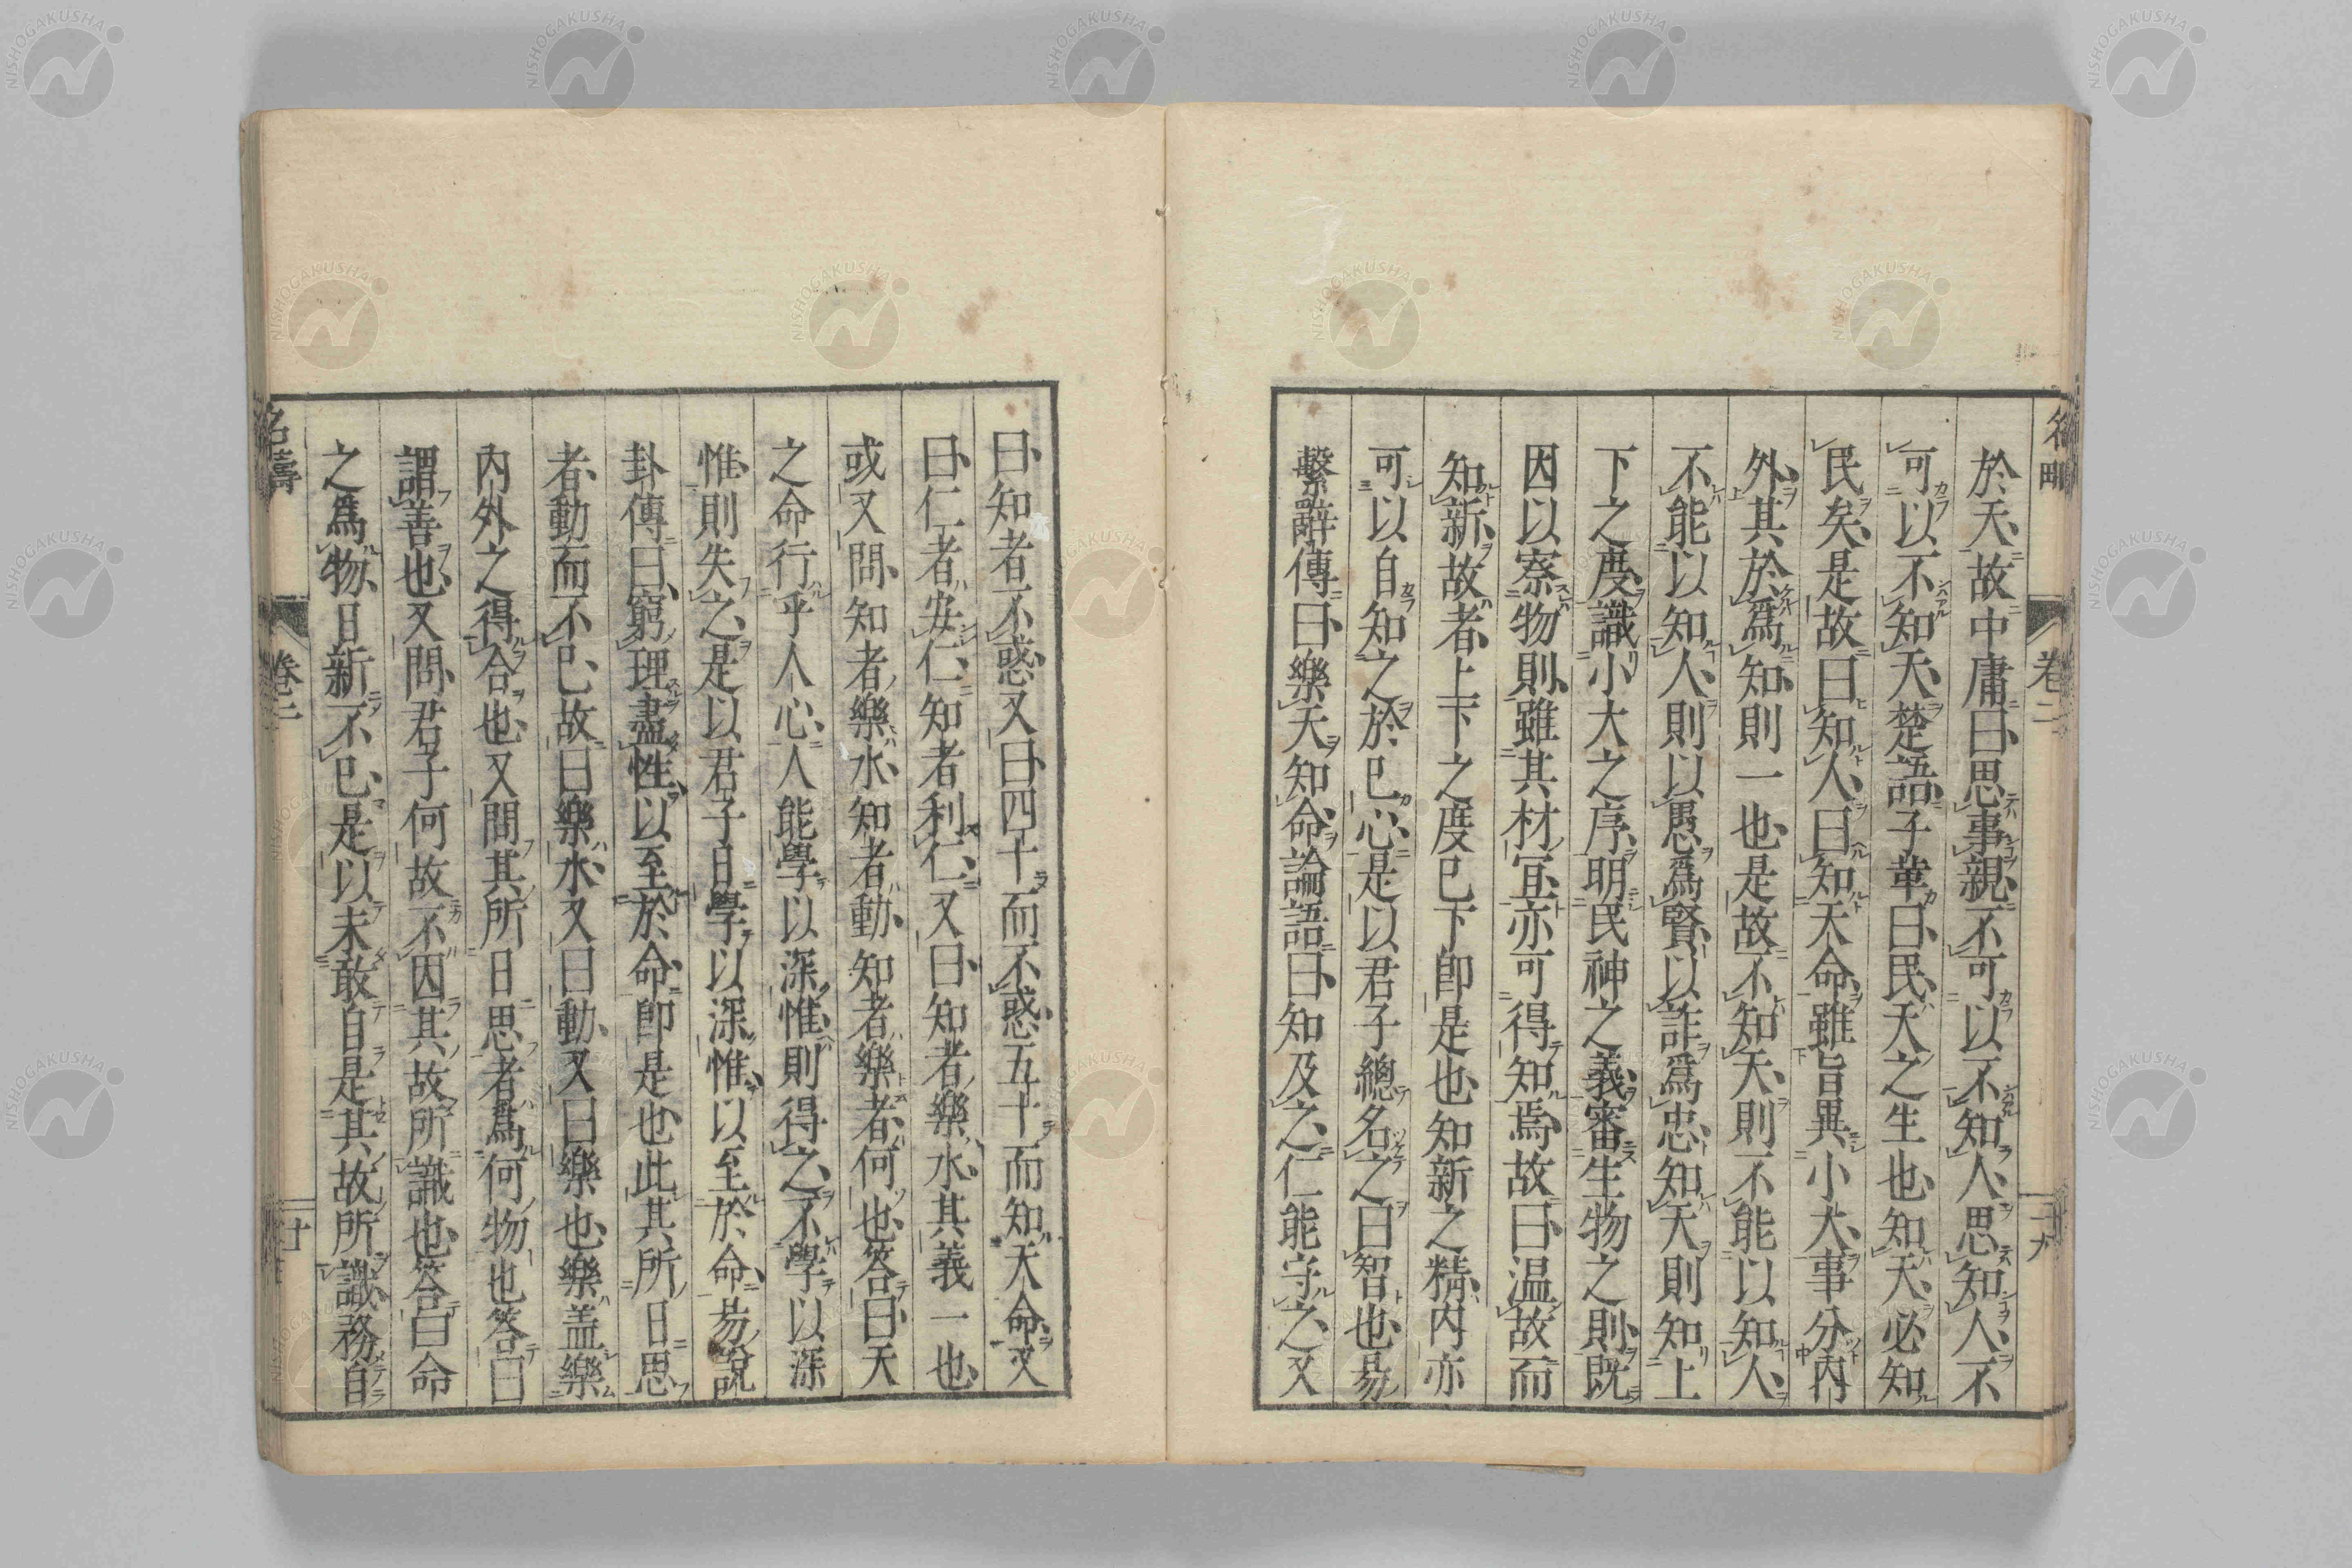 於天故中庸曰思事親不可以不知人思知人不
可以不知天楚語子革曰民天之生也知天必知
民矣是故曰知人曰知天命雖旨異小大事分內
外其於爲知則一也是故不知天則不能以知人
不能以知人則以愚爲賢以詐爲忠知天則知上
下之度識小大之序明民神之義審生物之則既
因以察物則雖其材宜亦可得知焉故曰温故而
知新故者上下之度已下卽是也知新之精內亦
可以自知之於已心是以君子總名之曰智也易
繫辭傳曰樂天知命論語曰知及之仁能守之又
卷二
曰知者不惑又曰四十而不惑五十而知天命又
曰仁者安仁知者利仁又曰知者樂水其義一也
或又問知者樂水知者動知者樂者何也答曰天
之命行乎人心人能學以深惟則得之不學以深
惟則失之是以君子日學以深惟以至於命易說
卦傳曰窮理盡性以至於命卽是也此其所日思
者動而不已故曰樂水又曰動又曰樂也樂盖樂
內外之得合也又問其所日思者爲何物也答曰
謂善也又問君子何故不因其故所識也答曰命
之爲物日新不已是以未敢自是其故所識務自
名疇
卷二
二十
NISHOGAKUSHA